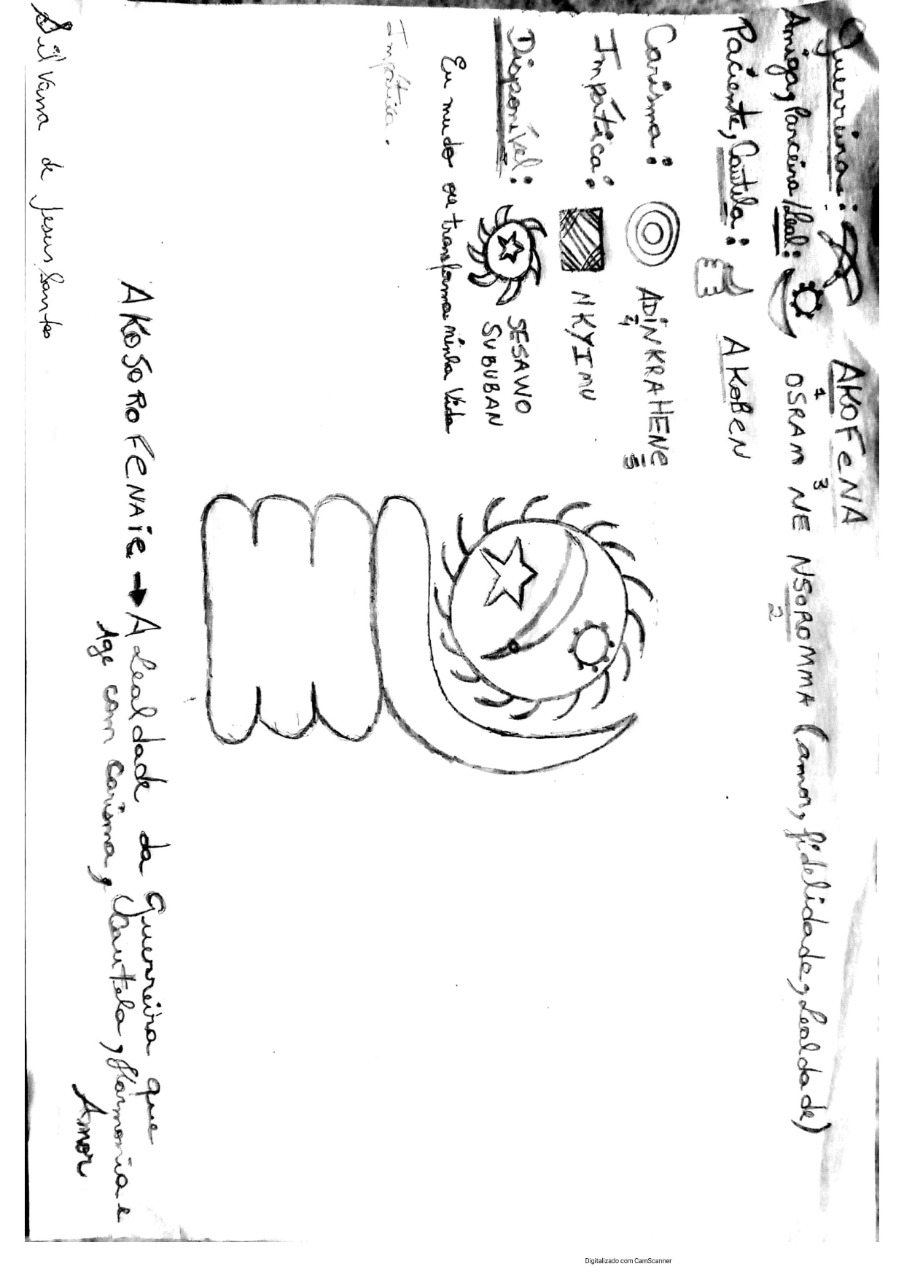 Guerreira: AKOFENA
Amiga, Parceira/Leal: OSRAM NE NSOROMMA (amor, fidelidade, Lealdade)
1 3 2
Paciente, Cautela: AKOBEN
Carisma: ADINKRAHENE
4 5
Impática: NKYIMU
Disponível: SESAWO
SUBUBAN
Eu mudo ou transformo minha vida
Impática.
AKOSOROFENAIE → A Lealdade da Guerreira que
Age com carisma, Cautela, Harmonia e
Amor
Silvana de Jesus Santos
Digitalizado com CamScanner